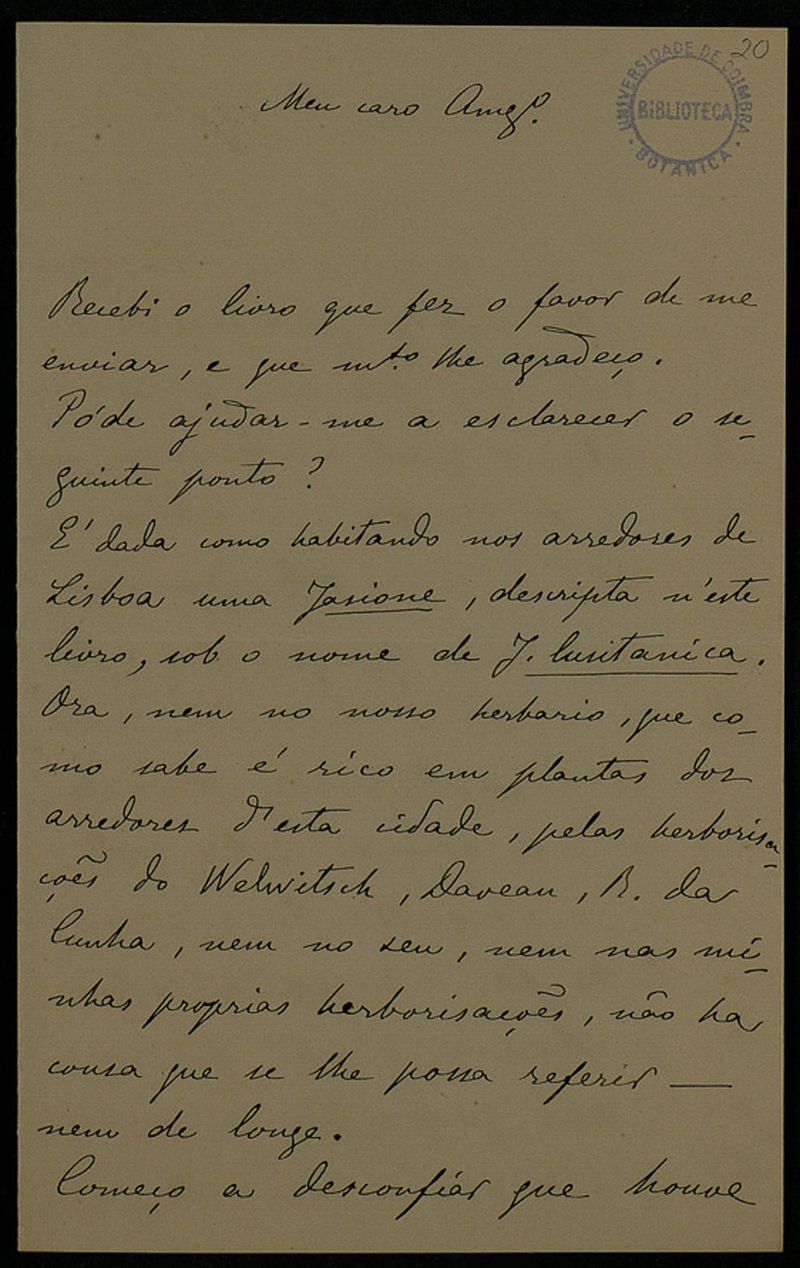 20
UNIVERSIDADE DE COIMBRA
BIBLIOTECA
BOTANICA
Meu caro Amgº.
Recebi o livro que fez o favor de me
enviar, e que mt.º lhe agradeço.
Póde ajudar-me a esclarecer o se-
guinte ponto?
É dada como habitando nos arredores de
Lisboa uma Jasione, descripta n'este
livro, sob o nome de J. lusitanica.
Ora, nem no nosso herbario, que co-
mo sabe é rico em plantas dos
arredores d'esta cidade, pelas herborisa-
ções do Welwitsch, Daveau, R. da
Cunha, nem no seu, nem nas mi-
nhas proprias herborisações, não ha
cousa que se lhe possa referir —
nem de longe.
Começo a desconfiar que houve